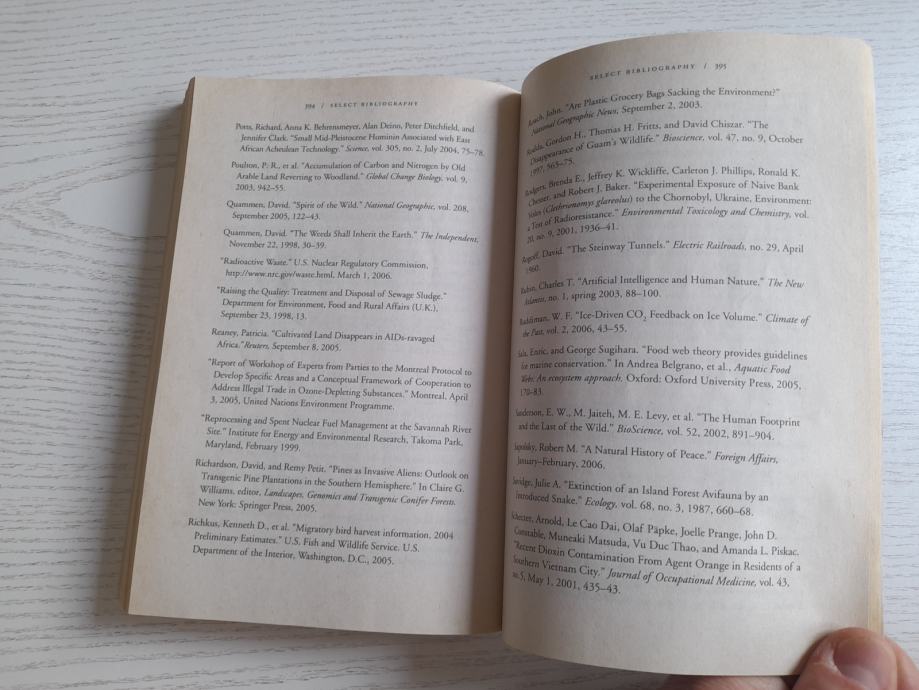 394 / SELECT BIBLIOGRAPHY
Potts, Richard, Anna K. Behrensmeyer, Alan Deino, Peter Ditchfield, and
Jennifer Clark. "Small Mid-Pleistocene Hominin Associated with East
African Acheulean Technology." Science, vol. 305, no. 2, July 2004, 75–78.
Poulton, P. R., et al. "Accumulation of Carbon and Nitrogen by Old
Arable Land Reverting to Woodland." Global Change Biology, vol. 9,
2003, 942–55.
Quammen, David. "Spirit of the Wild." National Geographic, vol. 208,
September 2005, 122–43.
Quammen, David. "The Weeds Shall Inherit the Earth." The Independent,
November 22, 1998, 30–39.
"Radioactive Waste." U.S. Nuclear Regulatory Commission,
http://www.nrc.gov/waste.html, March 1, 2006.
"Raising the Quality: Treatment and Disposal of Sewage Sludge."
Department for Environment, Food and Rural Affairs (U.K.),
September 23, 1998, 13.
Reaney, Patricia. "Cultivated Land Disappears in AIDs-ravaged
Africa." Reuters, September 8, 2005.
"Report of Workshop of Experts from Parties to the Montreal Protocol to
Develop Specific Areas and a Conceptual Framework of Cooperation to
Address Illegal Trade in Ozone-Depleting Substances." Montreal, April
3, 2005, United Nations Environment Programme.
"Reprocessing and Spent Nuclear Fuel Management at the Savannah River
Site." Institute for Energy and Environmental Research, Takoma Park,
Maryland, February 1999.
Richardson, David, and Remy Petit. "Pines as Invasive Aliens: Outlook on
Transgenic Pine Plantations in the Southern Hemisphere." In Claire G.
Williams, editor, Landscapes, Genomics and Transgenic Conifer Forests.
New York: Springer Press, 2005.
Richkus, Kenneth D., et al. "Migratory bird harvest information, 2004
Preliminary Estimates." U.S. Fish and Wildlife Service. U.S.
Department of the Interior, Washington, D.C., 2005.
SELECT BIBLIOGRAPHY / 395
Roach, John. "Are Plastic Grocery Bags Sacking the Environment?"
National Geographic News, September 2, 2003.
Rodda, Gordon H., Thomas H. Fritts, and David Chiszar. "The
Disappearance of Guam's Wildlife." Bioscience, vol. 47, no. 9, October
1997, 565–75.
Rodgers, Brenda E., Jeffrey K. Wickliffe, Carleton J. Phillips, Ronald K.
Chesser, and Robert J. Baker. "Experimental Exposure of Naive Bank
Voles (Clethrionomys glareolus) to the Chornobyl, Ukraine, Environment:
a Test of Radioresistance." Environmental Toxicology and Chemistry, vol.
20, no. 9, 2001, 1936–41.
Rogoff, David. "The Steinway Tunnels." Electric Railroads, no. 29, April
1960.
Rubin, Charles T. "Artificial Intelligence and Human Nature." The New
Atlantis, no. 1, spring 2003, 88–100.
Ruddiman, W. F. "Ice-Driven CO₂ Feedback on Ice Volume." Climate of
the Past, vol. 2, 2006, 43–55.
Sala, Enric, and George Sugihara. "Food web theory provides guidelines
for marine conservation." In Andrea Belgrano, et al., Aquatic Food
Webs: An ecosystem approach. Oxford: Oxford University Press, 2005,
170–83.
Sanderson, E. W., M. Jaiteh, M. E. Levy, et al. "The Human Footprint
and the Last of the Wild." BioScience, vol. 52, 2002, 891–904.
Sapolsky, Robert M. "A Natural History of Peace." Foreign Affairs,
January–February, 2006.
Savidge, Julie A. "Extinction of an Island Forest Avifauna by an
Introduced Snake." Ecology, vol. 68, no. 3, 1987, 660–68.
Schecter, Arnold, Le Cao Dai, Olaf Päpke, Joelle Prange, John D.
Constable, Muneaki Matsuda, Vu Duc Thao, and Amanda L. Piskac.
"Recent Dioxin Contamination From Agent Orange in Residents of a
Southern Vietnam City." Journal of Occupational Medicine, vol. 43,
no. 5, May 1, 2001, 435–43.